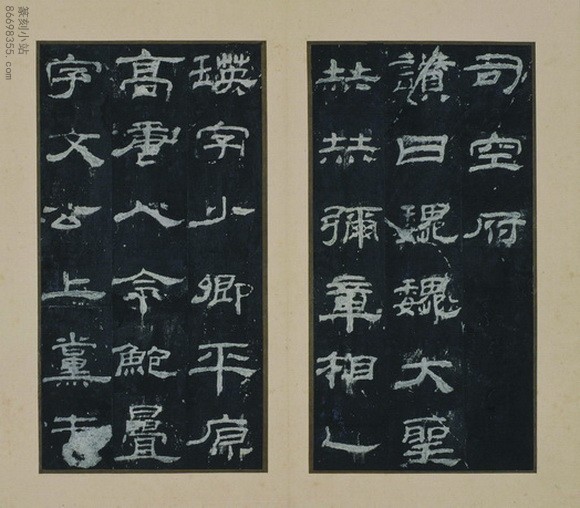 司空府
讃曰巍巍大聖
赫赫彌章相乙
瑛字少卿平原
高唐人令鮑疊
字文公上黨屯
篆刻小站
86698355.com